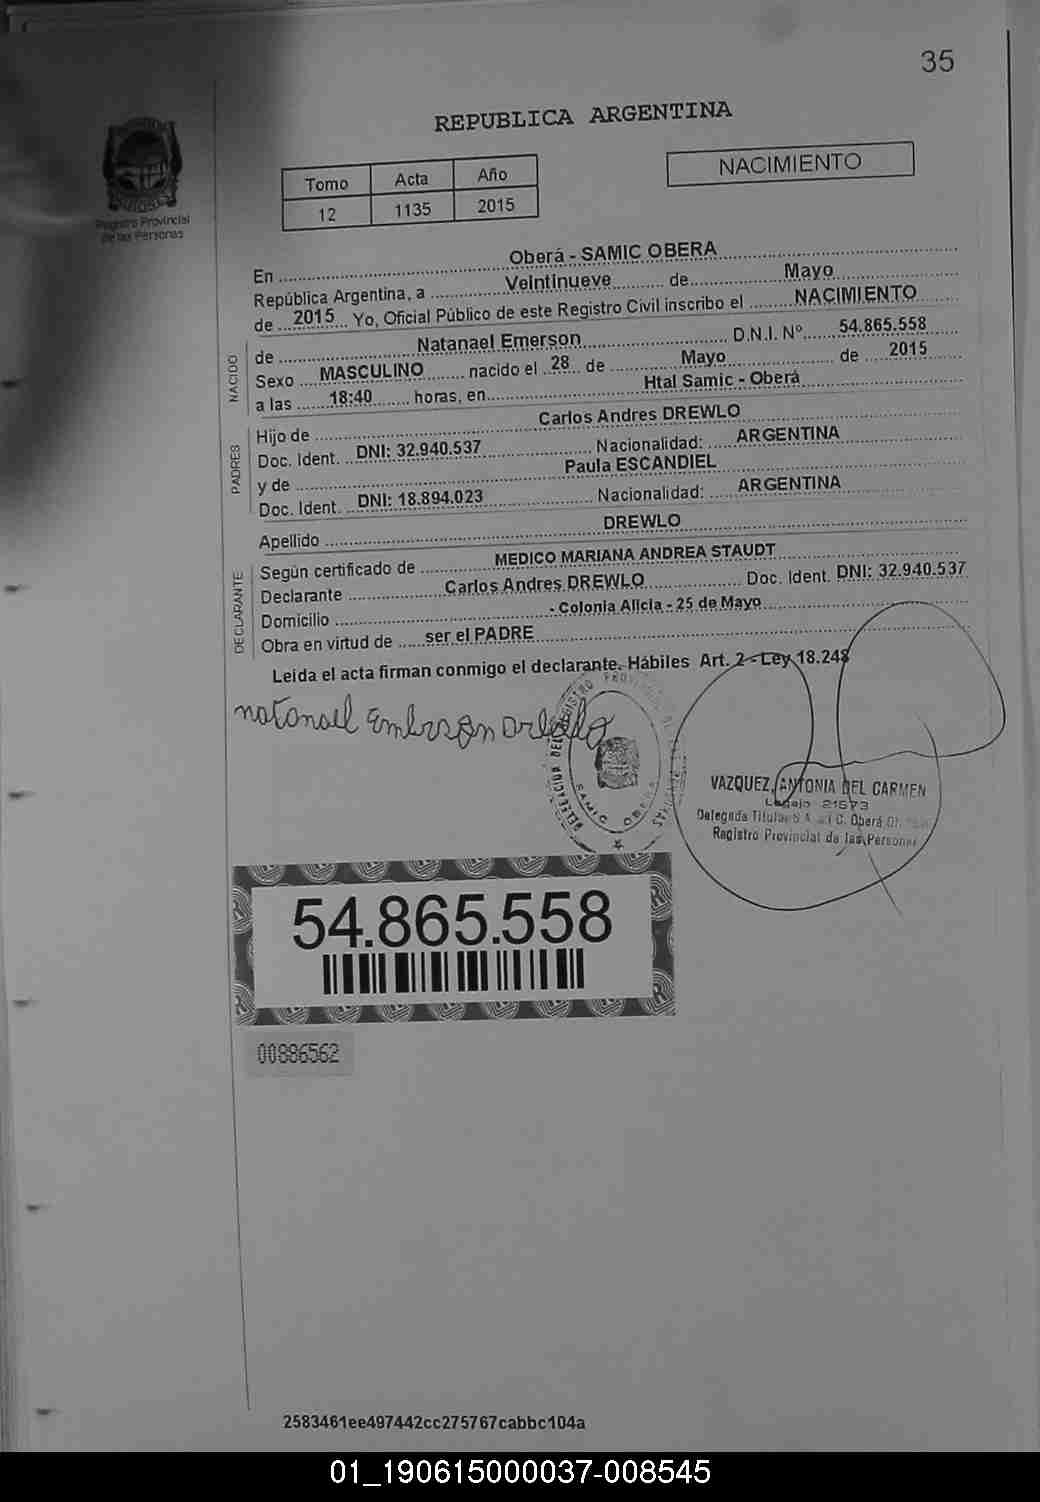 35
REPUBLICA ARGENTINA
Registro Provincial
de las Personas
Tomo Acta Año
12 1135 2015
NACIMIENTO
En ... Oberá - SAMIC OBERA
República Argentina, a ... Veintinueve ... de ... Mayo
de ... 2015 ... Yo, Oficial Público de este Registro Civil inscribo el ... NACIMIENTO
NACIDO
de ... Natanael Emerson ... D.N.I. Nº ... 54.865.558
Sexo ... MASCULINO ... nacido el ... 28 ... de ... Mayo ... de ... 2015
a las ... 18:40 ... horas, en ... Htal Samic - Oberá
PADRES
Hijo de ... Carlos Andres DREWLO
Doc. Ident. ... DNI: 32.940.537 ... Nacionalidad: ... ARGENTINA
y de ... Paula ESCANDIEL
Doc. Ident. ... DNI: 18.894.023 ... Nacionalidad: ... ARGENTINA
Apellido ... DREWLO
DECLARANTE
Según certificado de ... MEDICO MARIANA ANDREA STAUDT
Declarante ... Carlos Andres DREWLO ... Doc. Ident. DNI: 32.940.537
Domicilio ... - Colonia Alicia - 25 de Mayo
Obra en virtud de ... ser el PADRE
Leída el acta firman conmigo el declarante. Hábiles Art. 2 - Ley 18.248
natanael
DELEGACION DEL REGISTRO PROVINCIAL DE LAS PERSONAS
SAMIC OBERA
VAZQUEZ, ANTONIA DEL CARMEN
Legajo 21573
Delegada Titular Oberá
Registro Provincial de las Personas
54.865.558
00886562
2583461ee497442cc275767cabbc104a
01_190615000037-008545